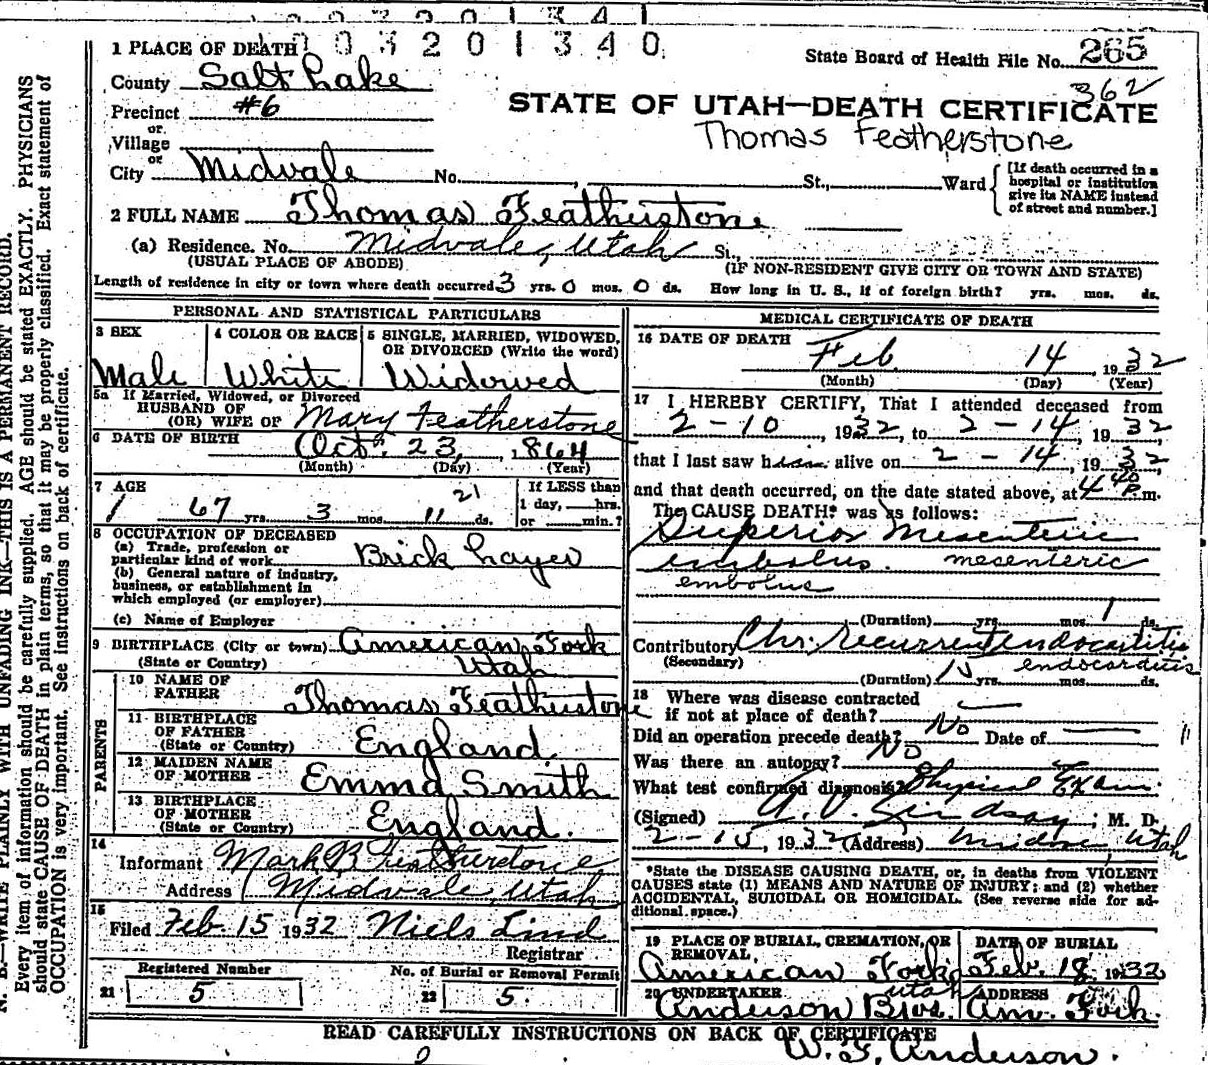 003201341
1003201340
1 PLACE OF DEATH
State Board of Health File No. 265
County Salt Lake
362
Precinct #6
STATE OF UTAH—DEATH CERTIFICATE
or
Village
Thomas Featherstone
or
City Midvale No. , St., Ward
[If death occurred in a hospital or institution give its NAME instead of street and number.]
2 FULL NAME Thomas Featherstone
(a) Residence. No. Midvale, Utah St.,
(USUAL PLACE OF ABODE) (IF NON-RESIDENT GIVE CITY OR TOWN AND STATE)
Length of residence in city or town where death occurred 3 yrs. 0 mos. 0 ds. How long in U. S., if of foreign birth? yrs. mos. ds.
PERSONAL AND STATISTICAL PARTICULARS
3 SEX Male
4 COLOR OR RACE White
5 SINGLE, MARRIED, WIDOWED, OR DIVORCED (Write the word) Widowed
5a If Married, Widowed, or Divorced
HUSBAND OF
(OR) WIFE OF Mary Featherstone
6 DATE OF BIRTH Oct. 23, 1864
(Month) (Day) (Year)
7 AGE 67 yrs. 3 mos. 11 21 ds.
If LESS than
1 day, hrs.
or min.?
8 OCCUPATION OF DECEASED
(a) Trade, profession or
particular kind of work Brick Layer
(b) General nature of industry,
business, or establishment in
which employed (or employer)
(c) Name of Employer
9 BIRTHPLACE (City or town) American Fork
(State or Country) Utah
PARENTS
10 NAME OF FATHER Thomas Featherstone
11 BIRTHPLACE OF FATHER (State or Country) England.
12 MAIDEN NAME OF MOTHER Emma Smith
13 BIRTHPLACE OF MOTHER (State or Country) England.
14
Informant Mark B Featherstone
Address Midvale, Utah
15
Filed Feb. 15 1932 Niels Lind
Registrar
Registered Number
21 5
No. of Burial or Removal Permit
22 5.
MEDICAL CERTIFICATE OF DEATH
16 DATE OF DEATH
Feb. 14, 1932
(Month) (Day) (Year)
17 I HEREBY CERTIFY, That I attended deceased from
2-10, 1932, to 2-14, 1932
that I last saw him alive on 2-14, 1932,
and that death occurred, on the date stated above, at 4 40 P.m.
The CAUSE DEATH* was as follows:
Superior Mesenteric
embolus. mesenteric
embolus
(Duration) yrs. mos. 1 ds.
Contributory Chr. recurrent endocarditis
(Secondary) endocarditis
(Duration) yrs. mos. ds.
18 Where was disease contracted
if not at place of death?
Did an operation precede death? No Date of
Was there an autopsy? No
What test confirmed diagnosis? Physical Exam.
(Signed) A. V. Lindsay; M. D.
2-15, 1932 (Address) Midvale, Utah
*State the DISEASE CAUSING DEATH, or, in deaths from VIOLENT
CAUSES state (1) MEANS AND NATURE OF INJURY; and (2) whether
ACCIDENTAL, SUICIDAL OR HOMICIDAL. (See reverse side for ad-
ditional space.)
19 PLACE OF BURIAL, CREMATION, OR REMOVAL, American Fork, Utah
DATE OF BURIAL Feb. 18, 1932
20 UNDERTAKER Anderson Bros.
ADDRESS Am. Fork.
READ CAREFULLY INSTRUCTIONS ON BACK OF CERTIFICATE
W. F. Anderson.
N. B.—WRITE PLAINLY WITH UNFADING INK—THIS IS A PERMANENT RECORD.
Every item of information should be carefully supplied. AGE should be stated EXACTLY. PHYSICIANS
should state CAUSE OF DEATH in plain terms, so that it may be properly classified. Exact statement of
OCCUPATION is very important. See instructions on back of certificate.